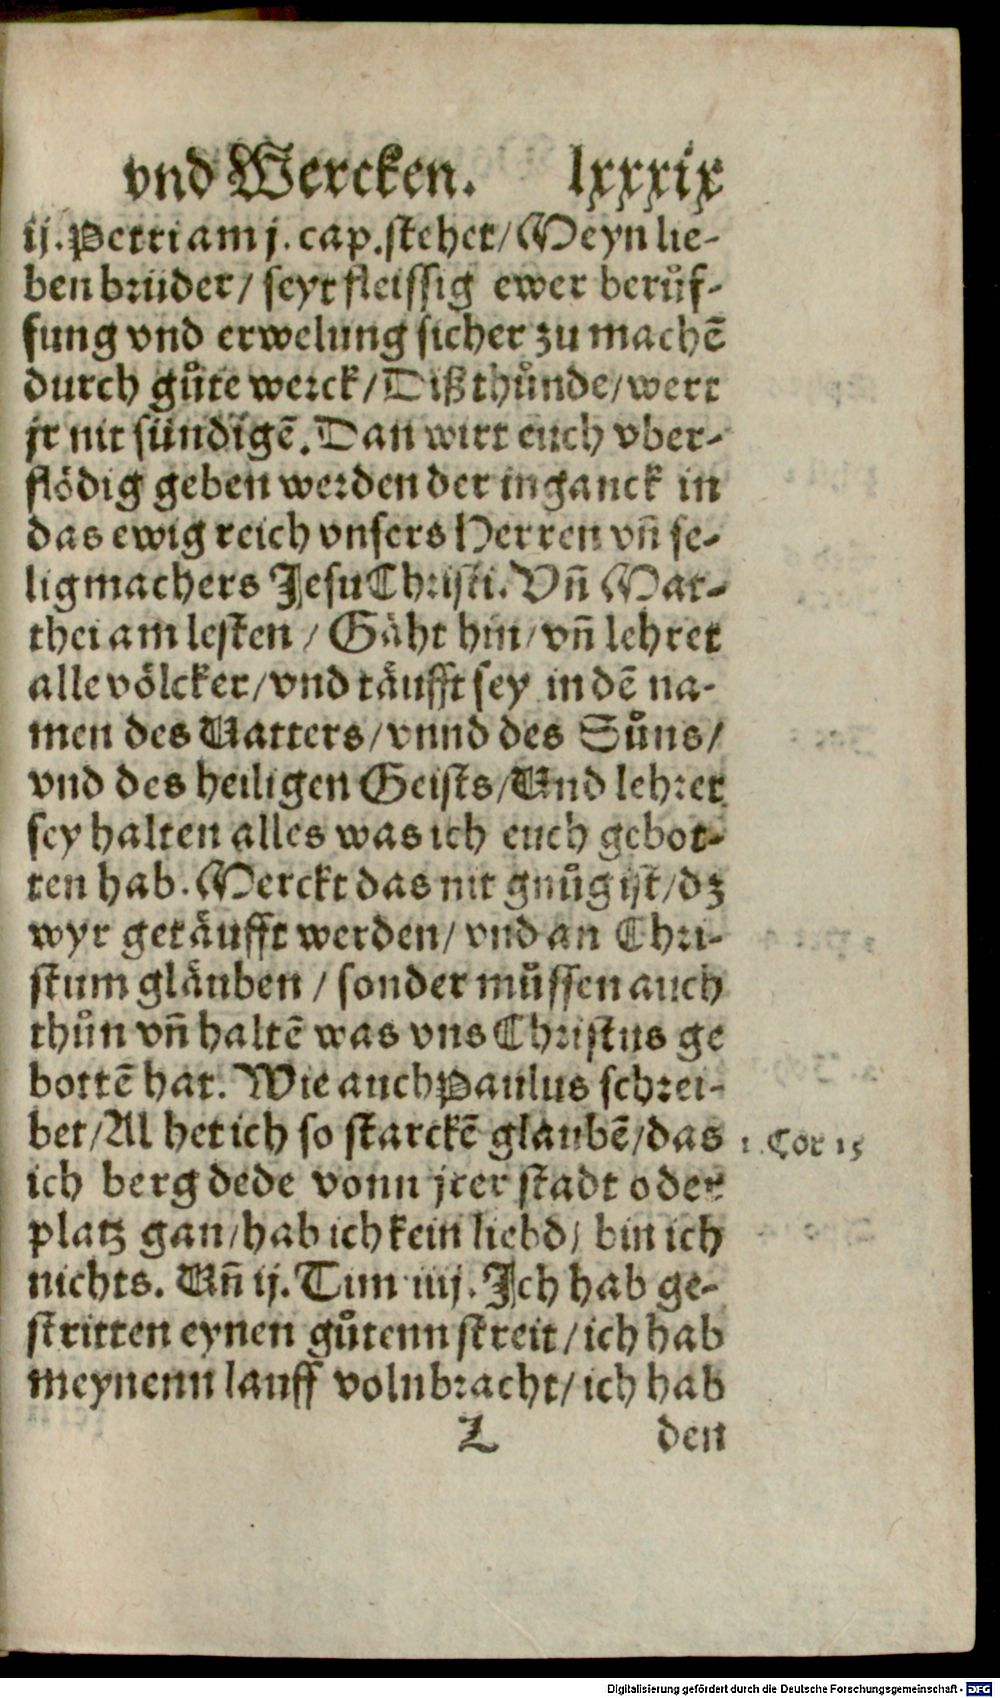 vnd Wercken. lxxxix
ij. Petri am j. cap. stehet/ Meyn lie-
ben brüder/ seyt fleissig ewer berůf-
fung vnd erwelung sicher zu machē
durch gůte werck/ Diß thůnde/ wert
jr nit sündigē. Dan wirt euch vber-
flödig geben werden der inganck in
das ewig reich vnsers Herren vn̄ se-
ligmachers Jesu Christi. Vn̄ Mat-
thei am lesten/ Gäht hin/ vn̄ lehret
alle völcker/ vnd täufft sey in dē na-
men des Vatters/ vnnd des Sůns/
vnd des heiligen Geists/ Vnd lehret
sey halten alles was ich euch gebot-
ten hab. Merckt das nit gnůg ist/ dz
wyr getäufft werden/ vnd an Chri-
stum gläuben/ sonder můssen auch
thůn vn̄ haltē was vns Christus ge
bottē hat. Wie auch Paulus schrei-
bet/ Al het ich so starckē glaubē/ das
1. Cor 15
ich berg dede vonn jrer stadt oder
platz gan/ hab ich kein liebd/ bin ich
nichts. Vn̄ ij. Tim iiij. Ich hab ge-
stritten eynen gůtenn streit/ ich hab
meynenn lauff volnbracht/ ich hab
Z den
Digitalisierung gefördert durch die Deutsche Forschungsgemeinschaft - DFG